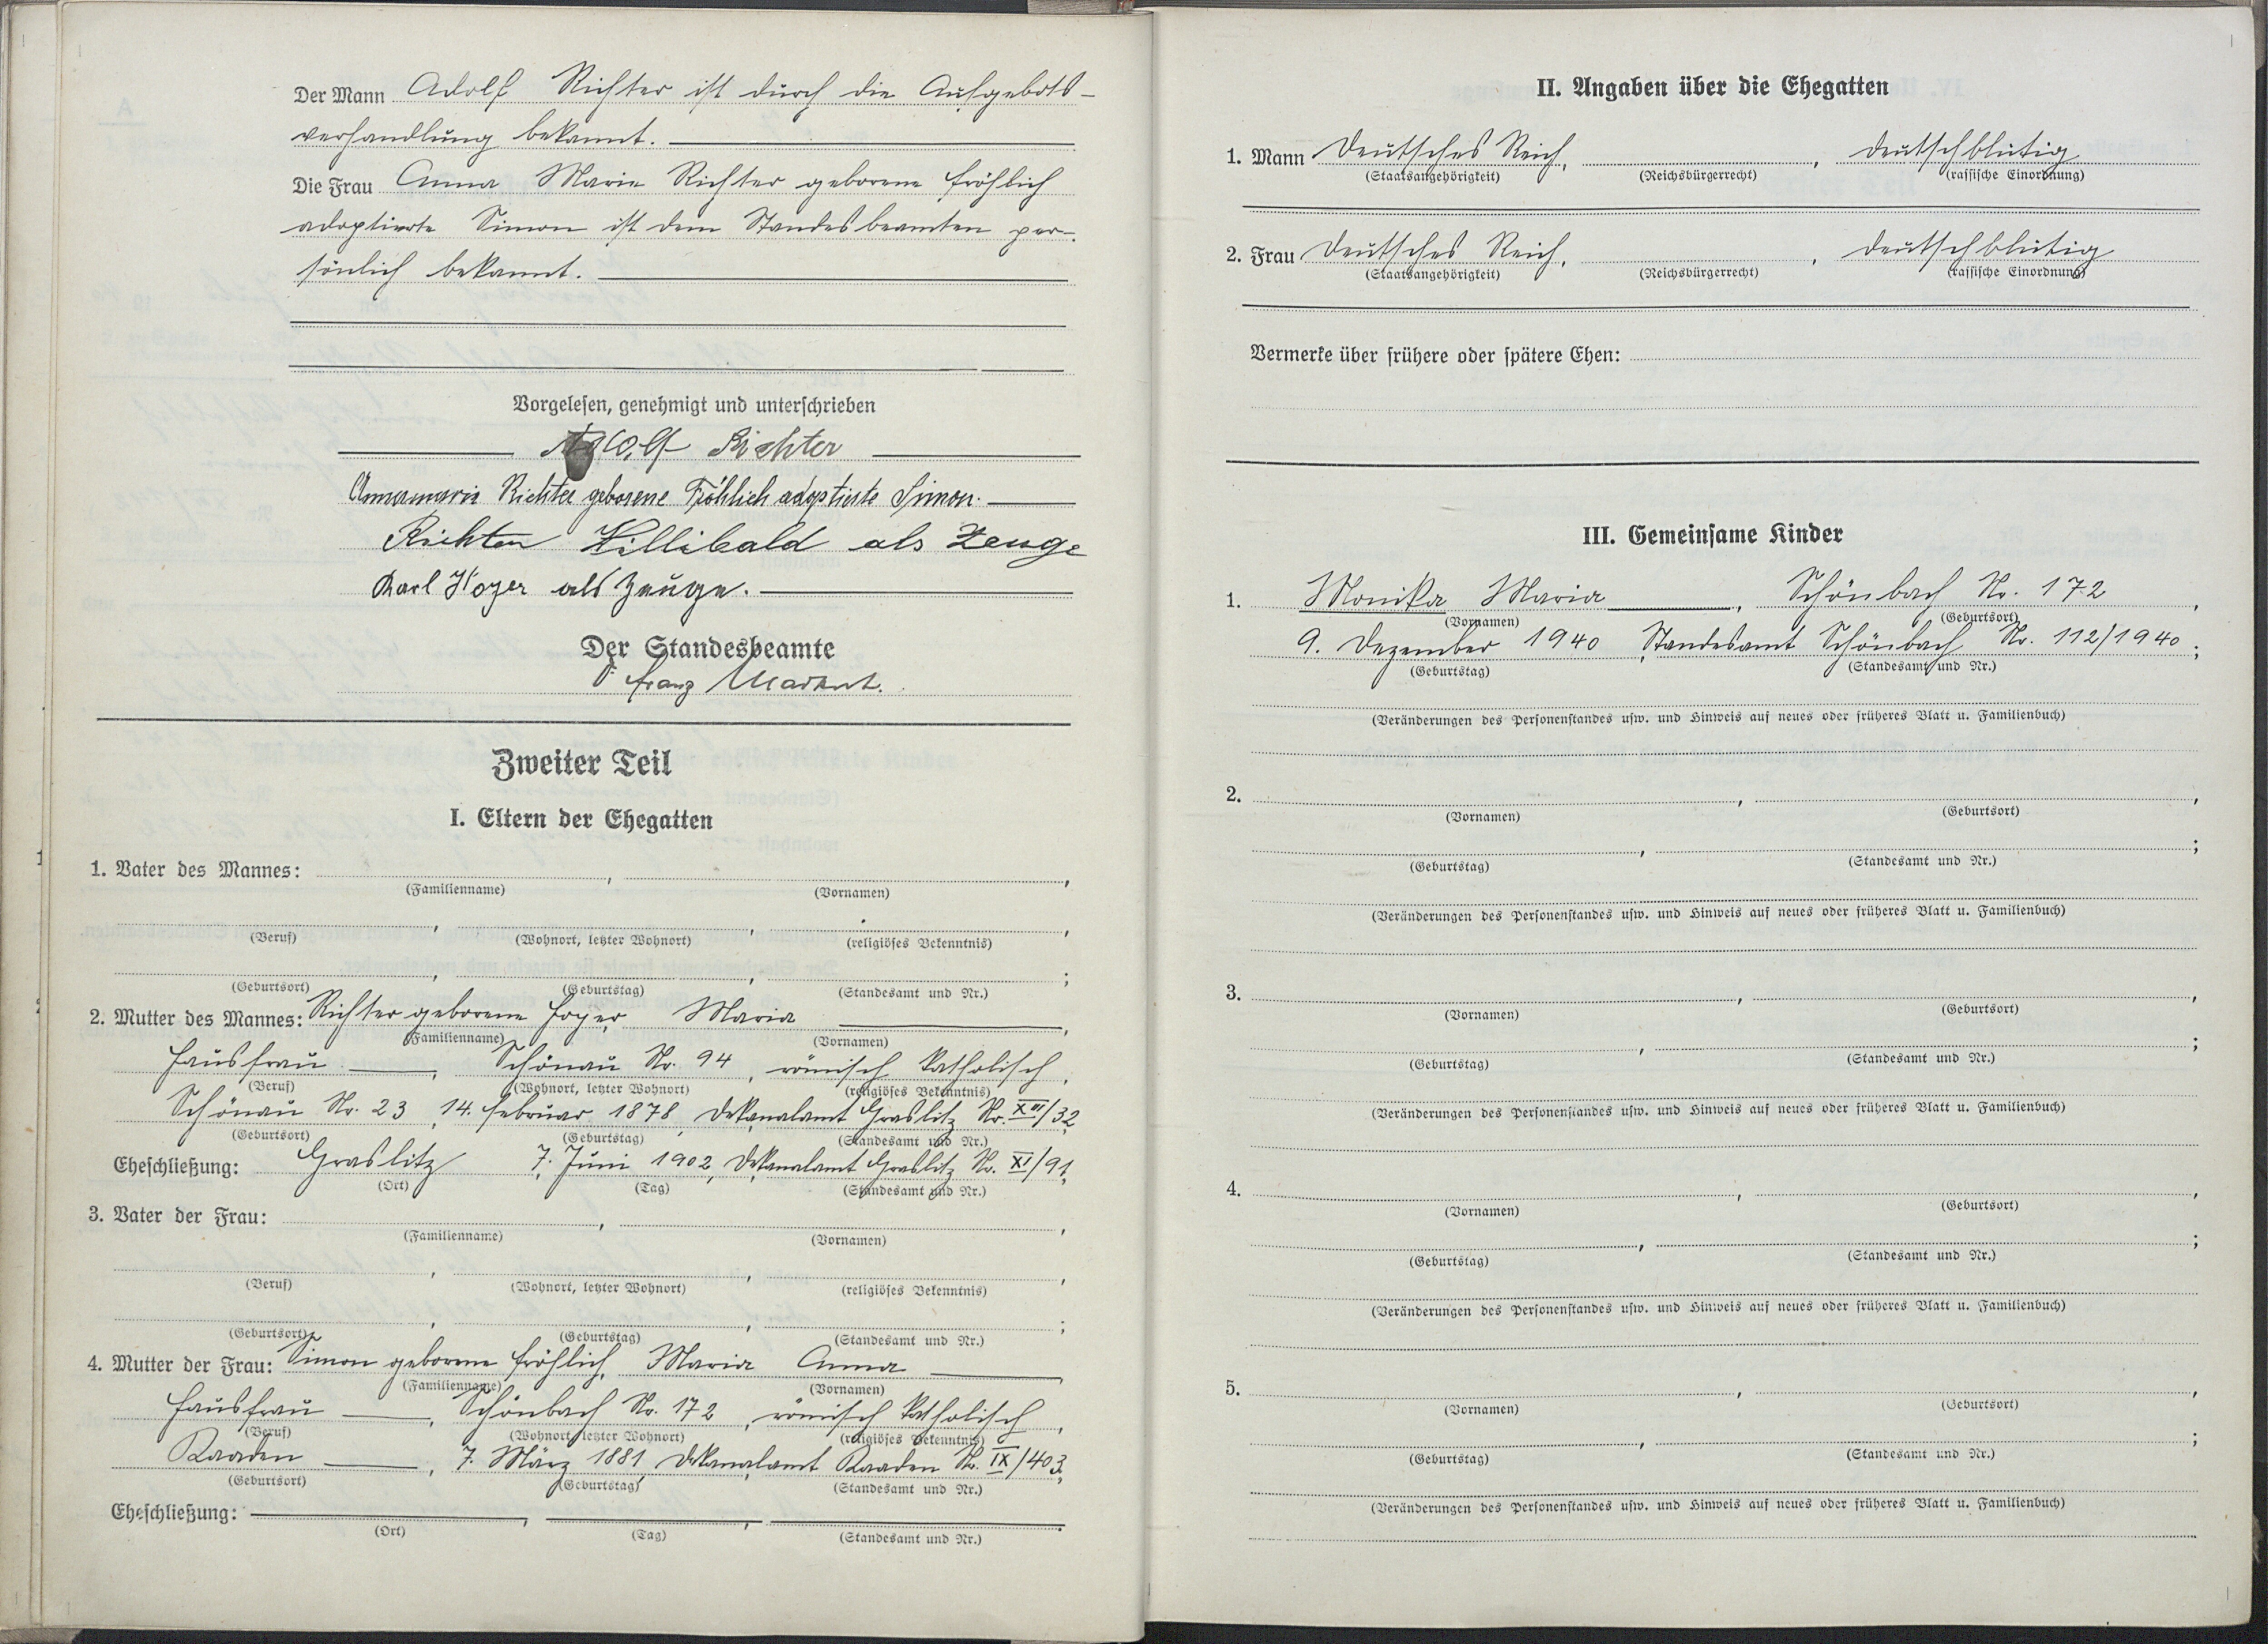 Der Mann Adolf Richter ist durch die Aufgebots-
verhandlung bekannt.
Die Frau Anna Marie Richter geborene Fröhlich
adoptierte Simon ist dem Standesbeamten per-
sönlich bekannt.
Vorgelesen, genehmigt und unterschrieben
Adolf Richter
Annamaria Richter geborene Fröhlich adoptierte Simon.
Richter Willibald als Zeuge
Karl Hoyer als Zeuge.
Der Standesbeamte
Franz
Zweiter Teil
I. Eltern der Ehegatten
1. Vater des Mannes: , ,
(Familienname) (Vornamen)
, , ,
(Beruf) (Wohnort, letzter Wohnort) (religiöses Bekenntnis)
, , ;
(Geburtsort) (Geburtstag) (Standesamt und Nr.)
2. Mutter des Mannes: Richter geborene Hoyer, Maria ,
(Familienname) (Vornamen)
Hausfrau , Schönau Nr. 94 , römisch katholisch ,
(Beruf) (Wohnort, letzter Wohnort) (religiöses Bekenntnis)
Schönau Nr. 23 , 14. Februar 1878 , Dekanalamt Graslitz Nr. XIII/32
(Geburtsort) (Geburtstag) (Standesamt und Nr.)
Eheschließung: Graslitz , 7. Juni 1902 , Dekanalamt Graslitz Nr. XI/91
(Ort) (Tag) (Standesamt und Nr.)
3. Vater der Frau: , ,
(Familienname) (Vornamen)
, , ,
(Beruf) (Wohnort, letzter Wohnort) (religiöses Bekenntnis)
, , ;
(Geburtsort) (Geburtstag) (Standesamt und Nr.)
4. Mutter der Frau: Simon geborene Fröhlich, Maria Anna ,
(Familienname) (Vornamen)
Hausfrau , Schönbach Nr. 172 , römisch katholisch ,
(Beruf) (Wohnort, letzter Wohnort) (religiöses Bekenntnis)
Kaaden , 7. März 1881 , Dekanalamt Kaaden Nr. IX/403
(Geburtsort) (Geburtstag) (Standesamt und Nr.)
Eheschließung: , ,
(Ort) (Tag) (Standesamt und Nr.)
II. Angaben über die Ehegatten
1. Mann Deutsches Reich, , deutschblütig
(Staatsangehörigkeit) (Reichsbürgerrecht) (rassische Einordnung)
2. Frau Deutsches Reich, , deutschblütig
(Staatsangehörigkeit) (Reichsbürgerrecht) (rassische Einordnung)
Vermerke über frühere oder spätere Ehen:
III. Gemeinsame Kinder
1. Monika Maria , Schönbach Nr. 172 ,
(Vornamen) (Geburtsort)
9. Dezember 1940 , Standesamt Schönbach Nr. 112/1940 ;
(Geburtstag) (Standesamt und Nr.)
(Veränderungen des Personenstandes usw. und Hinweis auf neues oder früheres Blatt u. Familienbuch)
2. , ,
(Vornamen) (Geburtsort)
, ;
(Geburtstag) (Standesamt und Nr.)
(Veränderungen des Personenstandes usw. und Hinweis auf neues oder früheres Blatt u. Familienbuch)
3. , ,
(Vornamen) (Geburtsort)
, ;
(Geburtstag) (Standesamt und Nr.)
(Veränderungen des Personenstandes usw. und Hinweis auf neues oder früheres Blatt u. Familienbuch)
4. , ,
(Vornamen) (Geburtsort)
, ;
(Geburtstag) (Standesamt und Nr.)
(Veränderungen des Personenstandes usw. und Hinweis auf neues oder früheres Blatt u. Familienbuch)
5. , ,
(Vornamen) (Geburtsort)
, ;
(Geburtstag) (Standesamt und Nr.)
(Veränderungen des Personenstandes usw. und Hinweis auf neues oder früheres Blatt u. Familienbuch)